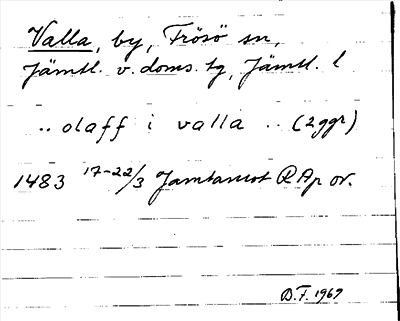 Valla, by, Frösö sn,
Jämtl. v. doms. tg, Jämtl. l
.. olaff i valla .. (2 ggr)
1483 17-22/3 Jamtamot RAp or.
D.F. 1969